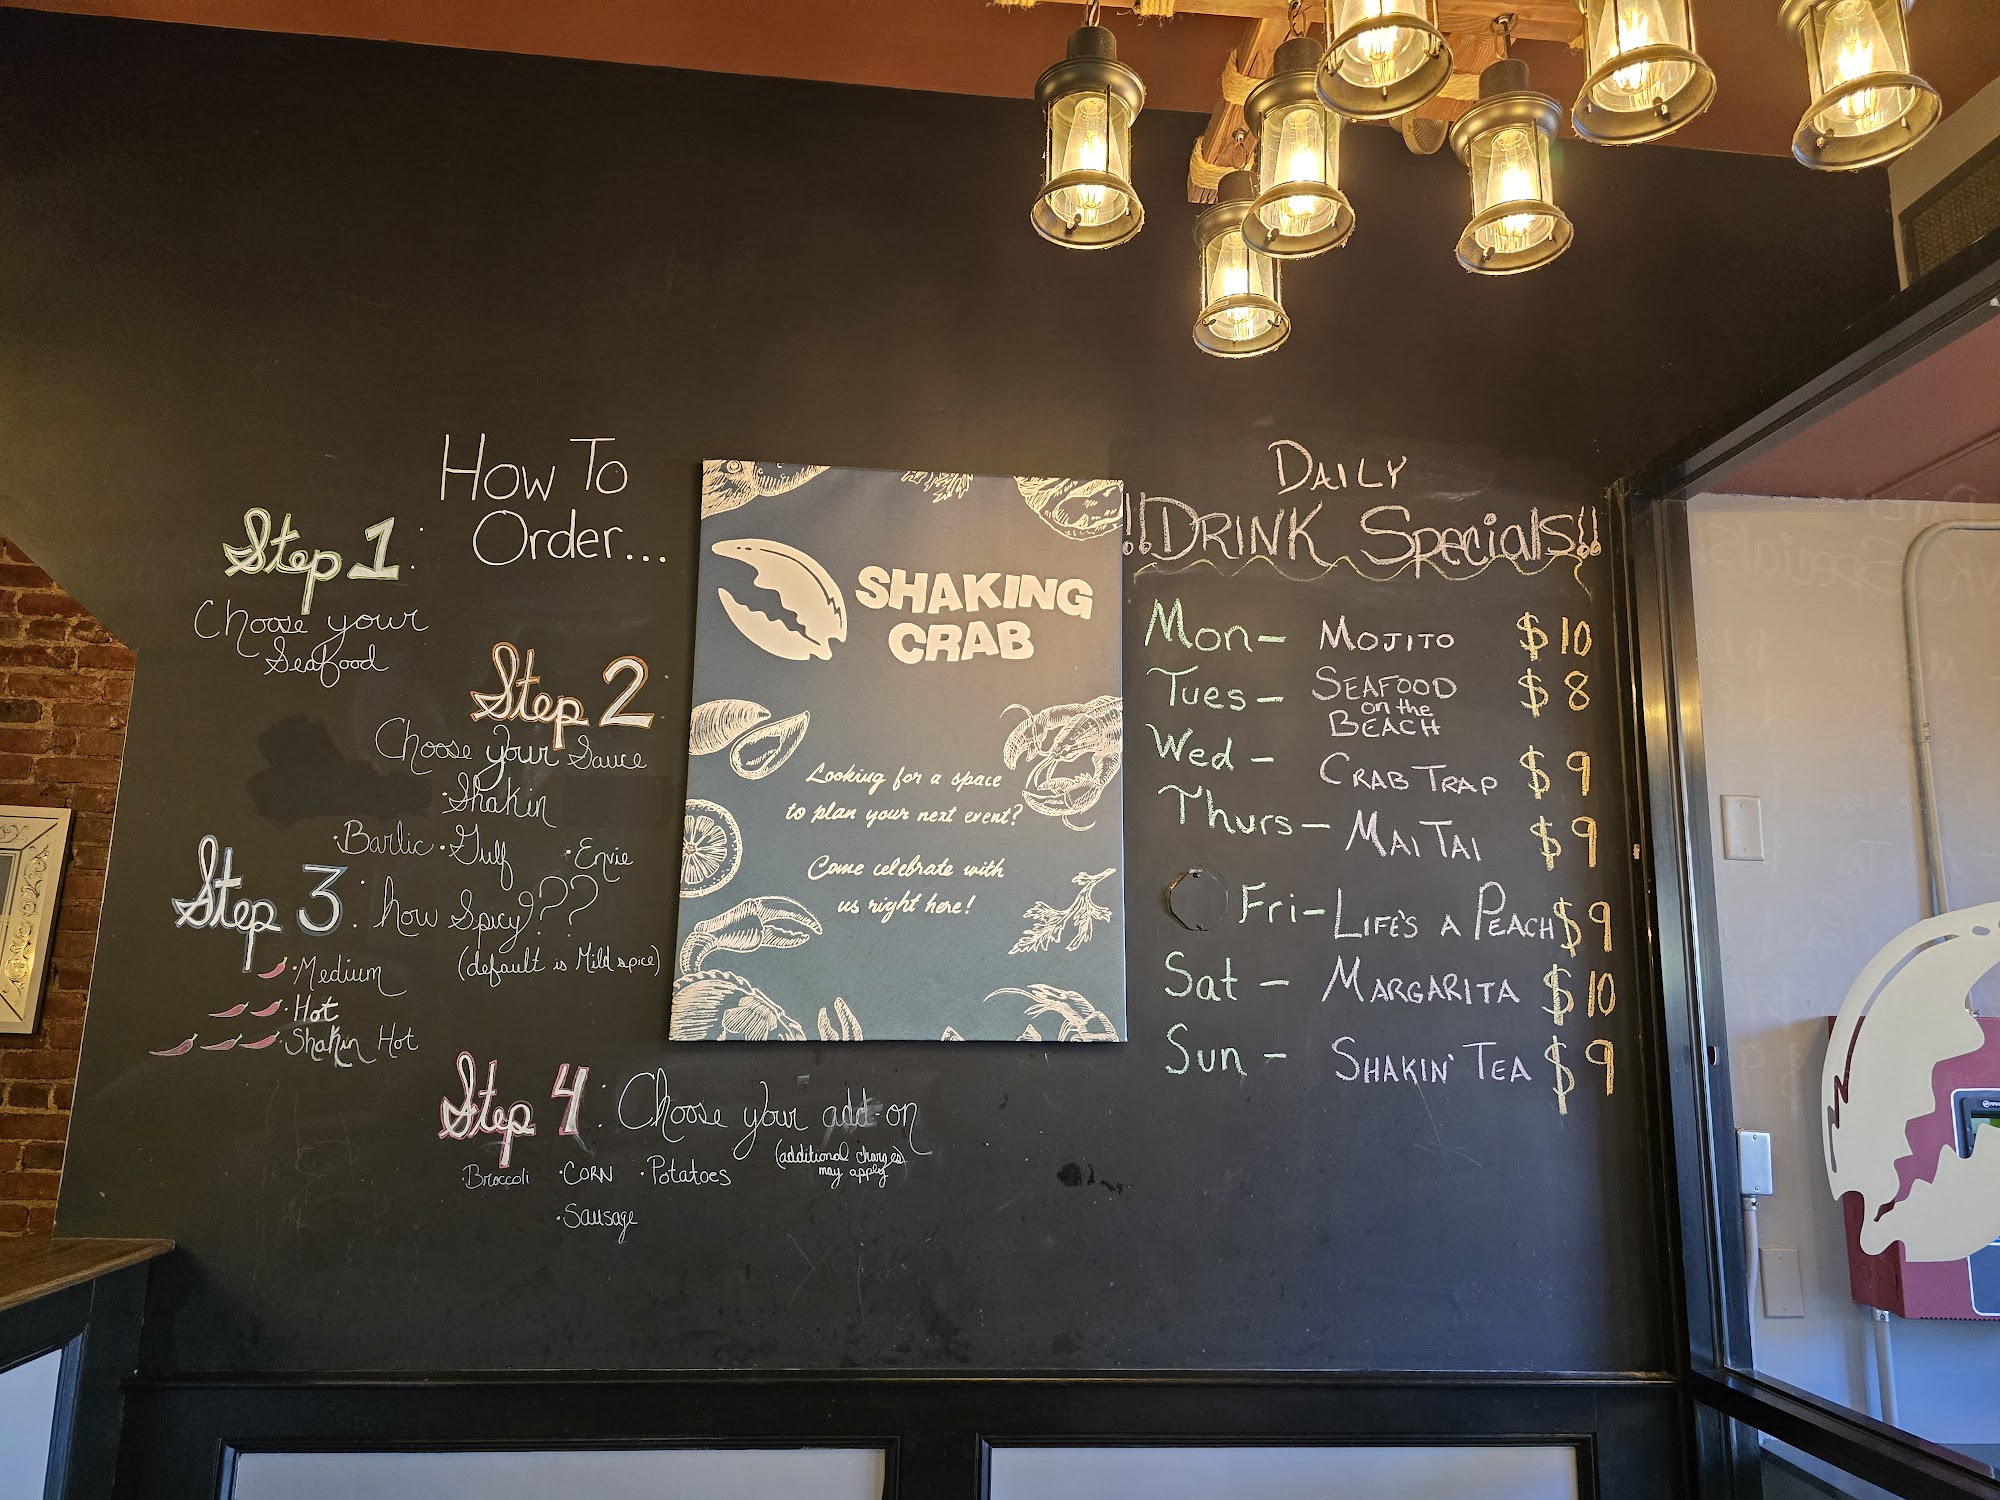 How To
Order...
Step 1:
Choose your
Seafood
Step 2
Choose your Sauce
·Shakin
·Barlic ·Gulf ·Envie
Step 3: how Spicy???
(default is Mild spice)
·Medium
·Hot
·Shakin Hot
Step 4: Choose your add-on
(additional charges)
may apply
·Broccoli ·CORN ·Potatoes
·Sausage
SHAKING
CRAB
Looking for a space
to plan your next event?
Come celebrate with
us right here!
DAILY
!!DRINK Specials!!
Mon- MOJITO $10
Tues- SEAFOOD $8
on the
BEACH
Wed- CRAB TRAP $9
Thurs- MAI TAI $9
Fri- LIFE'S A PEACH $9
Sat- MARGARITA $10
Sun- SHAKIN' TEA $9